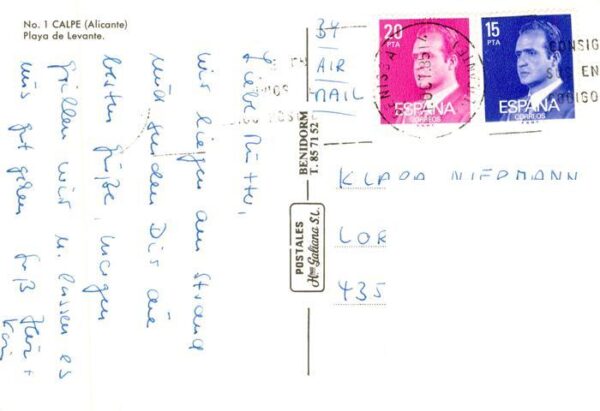 No. 1 CALPE (Alicante)
Playa de Levante.
Liebe Mutter,
wir liegen am Strand
und senden Dir die
besten Grüße, morgen
grillen wir u. lassen es
uns gut gehen. Gruß
BY
AIR
MAIL
20
PTA
ESPAÑA
CORREOS
15
PTA
ESPAÑA
CORREOS
OCT
CONSIG
SUS EN
CODIGO
BENIDORM
T. 85 71 52
POSTALES
Hnos Galiana S.L.
KLARA NIEDMANN
LOR
435